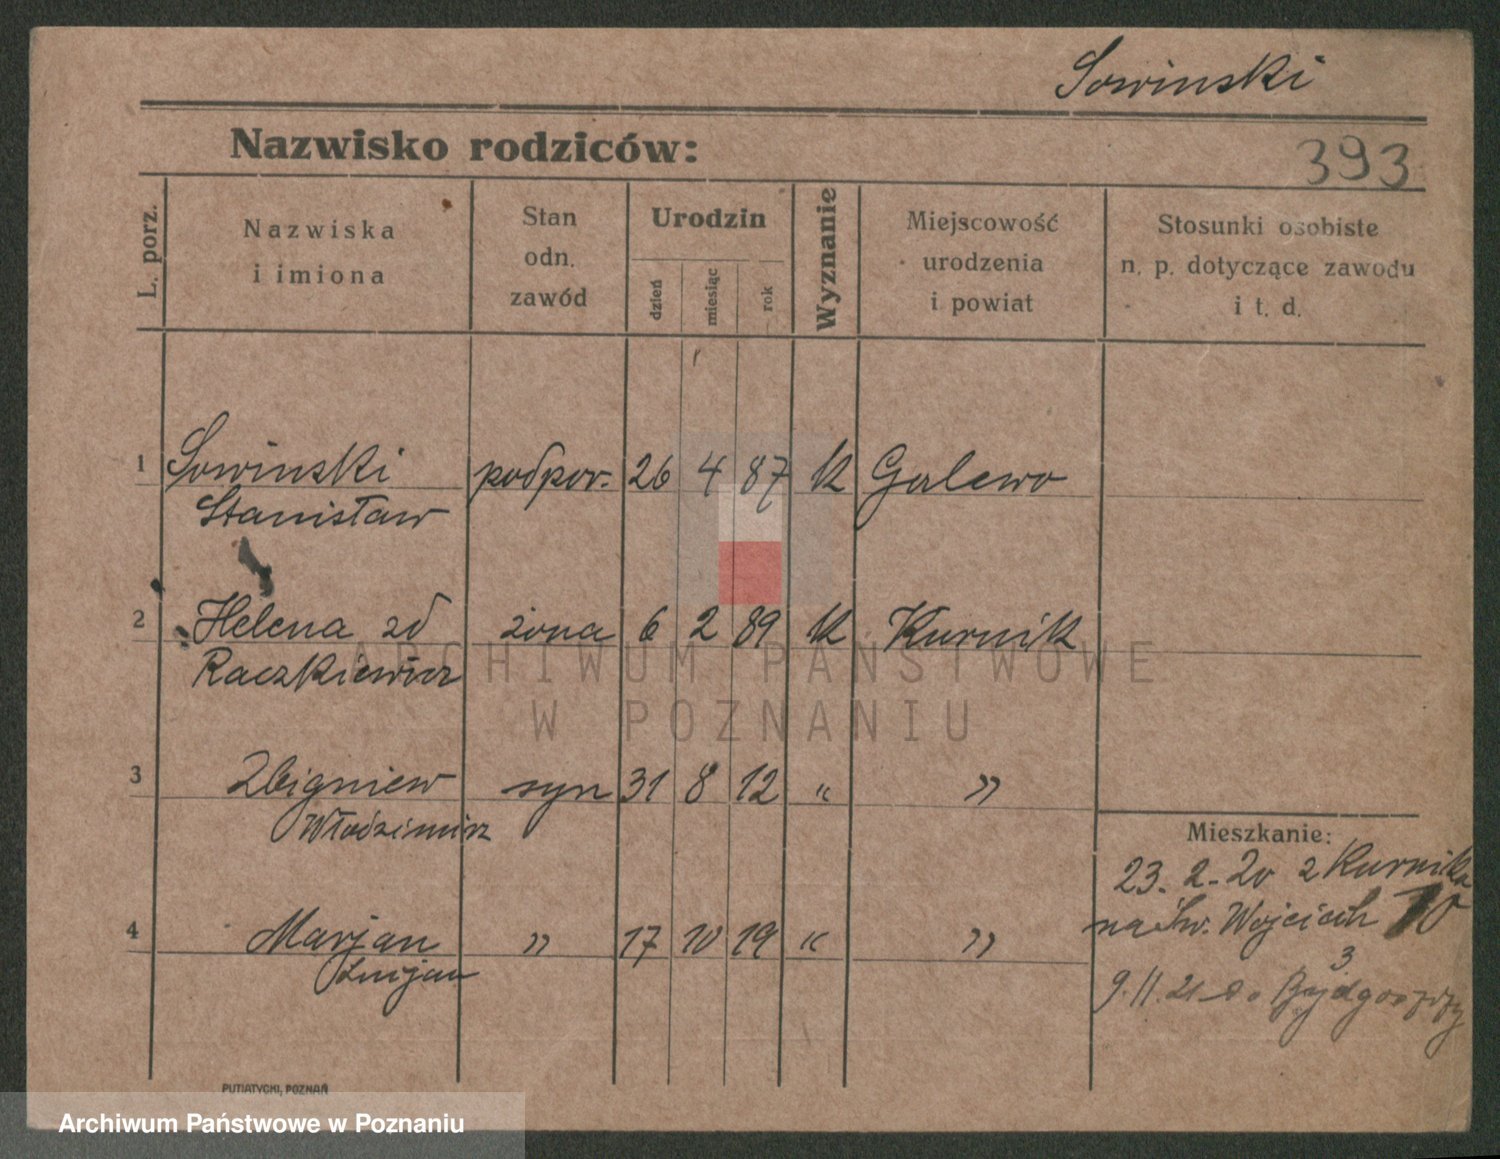 Sowinski
Nazwisko rodziców:
393
L. porz.
Nazwiska
i imiona
Stan
odn.
zawód
Urodzin
dzień
miesiąc
rok
Wyznanie
Miejscowość
urodzenia
i powiat
Stosunki osobiste
n. p. dotyczące zawodu
i t. d.
1 Sowinski podpor. 26 4 87 k Galewo
Stanisław
2 Helena zd żona 6 2 89 k Kurnik
Raczkiewicz
3 Zbigniew syn 31 8 12 " "
Włodzimirz
4 Marjan " 17 10 19 " "
Lucjan
Mieszkanie:
23. 2. 20 z Kurnika
na Św. Wojciech 10
3
9. 11. 21 do Bydgoszczy
PUTIATYCKI, POZNAŃ
ARCHIWUM PAŃSTWOWE
W POZNANIU
Archiwum Państwowe w Poznaniu